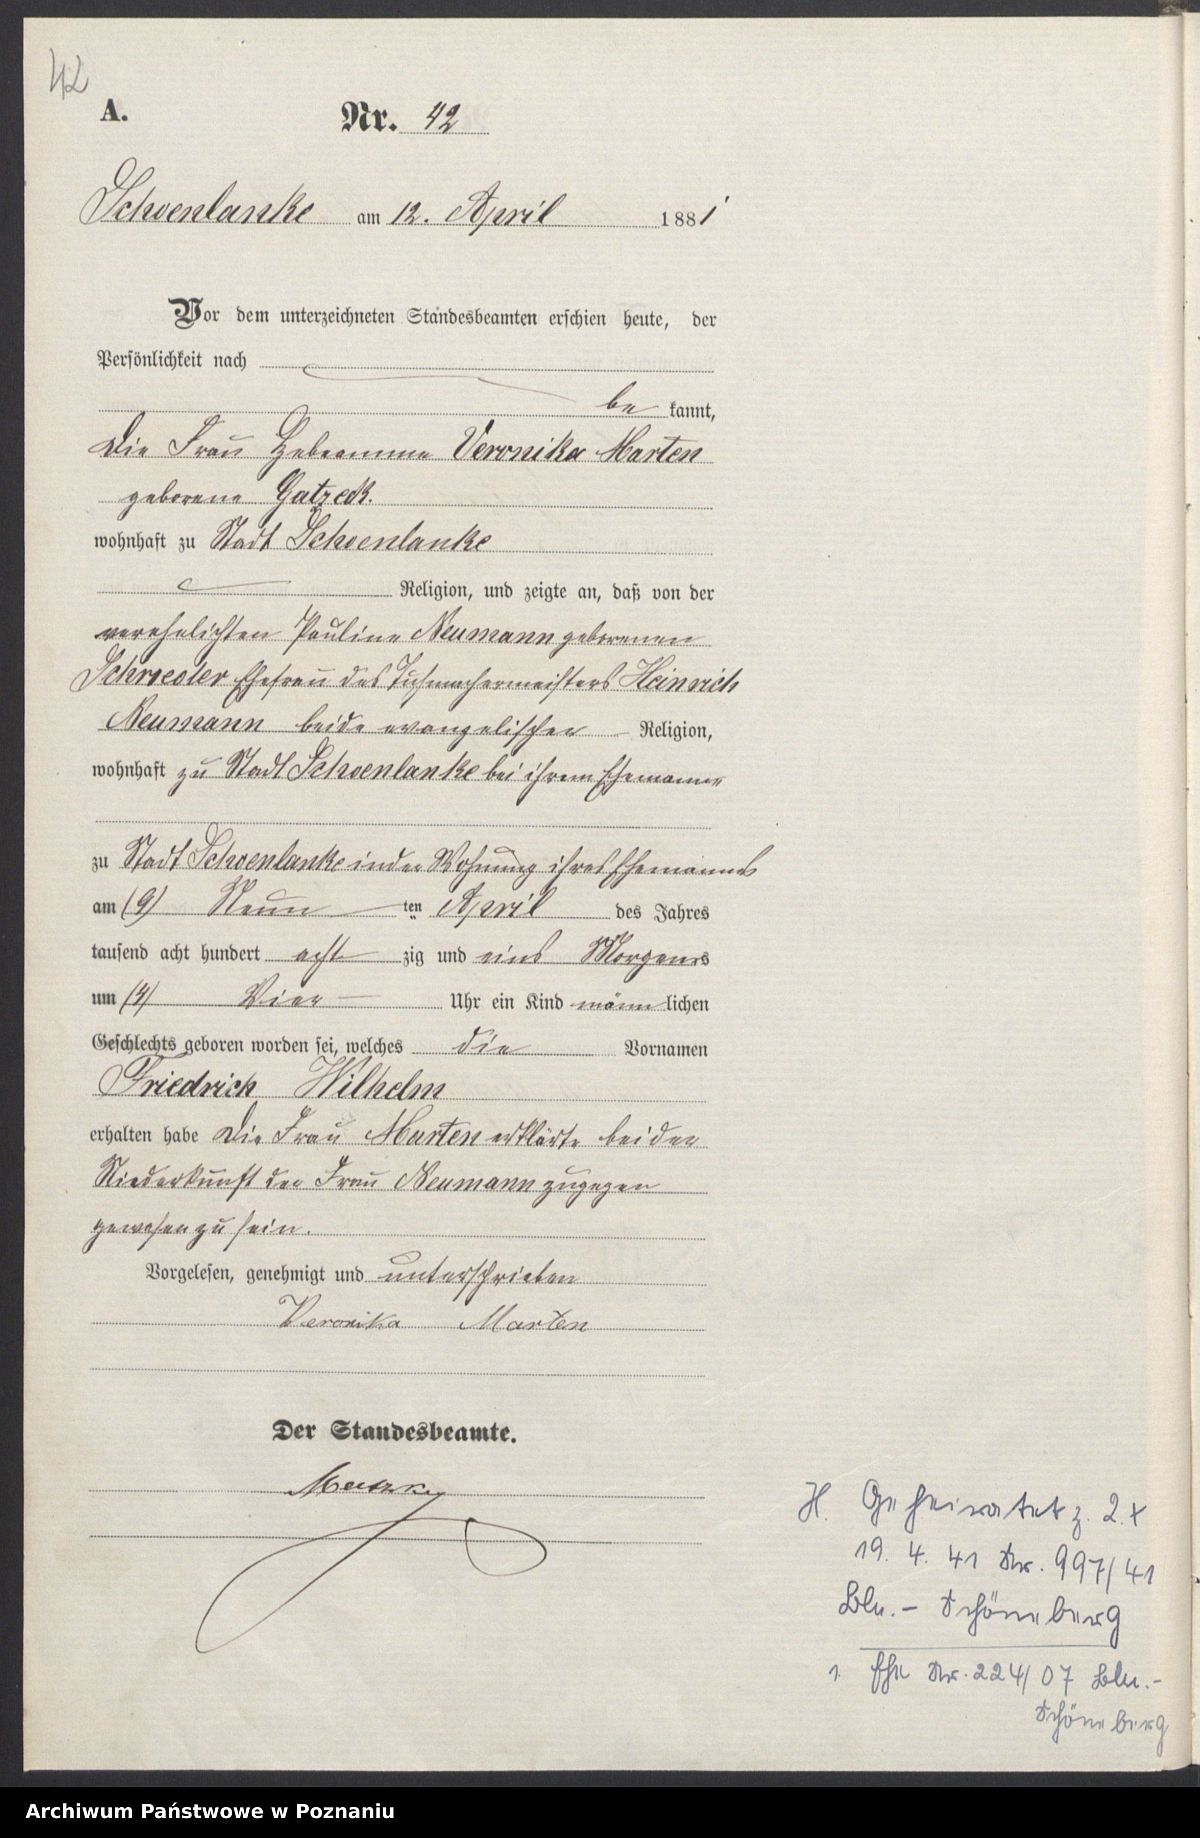 42
A.
Nr. 42
Schoenlanke am 12. April 1881
Vor dem unterzeichneten Standesbeamten erschien heute, der
Persönlichkeit nach
be kannt,
die Frau Hebeamme Veronika Marten
geborene Gatzeck.
wohnhaft zu Stadt Schoenlanke
Religion, und zeigte an, daß von der
verehelichten Pauline Neumann geborenen
Schroeder Ehefrau des Tuchmachermeisters Heinrich
Neumann beide evangelischer Religion,
wohnhaft zu Stadt Schoenlanke bei ihrem Ehemanne
zu Stadt Schoenlanke in der Wohnung ihres Ehemannes
am (9) Neun ten April des Jahres
tausend acht hundert acht zig und eins Morgens
um (4) Vier Uhr ein Kind männ lichen
Geschlechts geboren worden sei, welches die Vornamen
Friedrich Wilhelm
erhalten habe Die Frau Marten erklärte bei der
Niederkunft der Frau Neumann zugegen
gewesen zu sein.
Vorgelesen, genehmigt und unterschrieben
Veronika Marten
Der Standesbeamte.
H. Geheiratet z. 2. x
19. 4. 41 Nr. 997/41
Bln. - Schöneberg
1. Ehe Nr. 224/07 Bln.-
Schöneberg
Archiwum Państwowe w Poznaniu